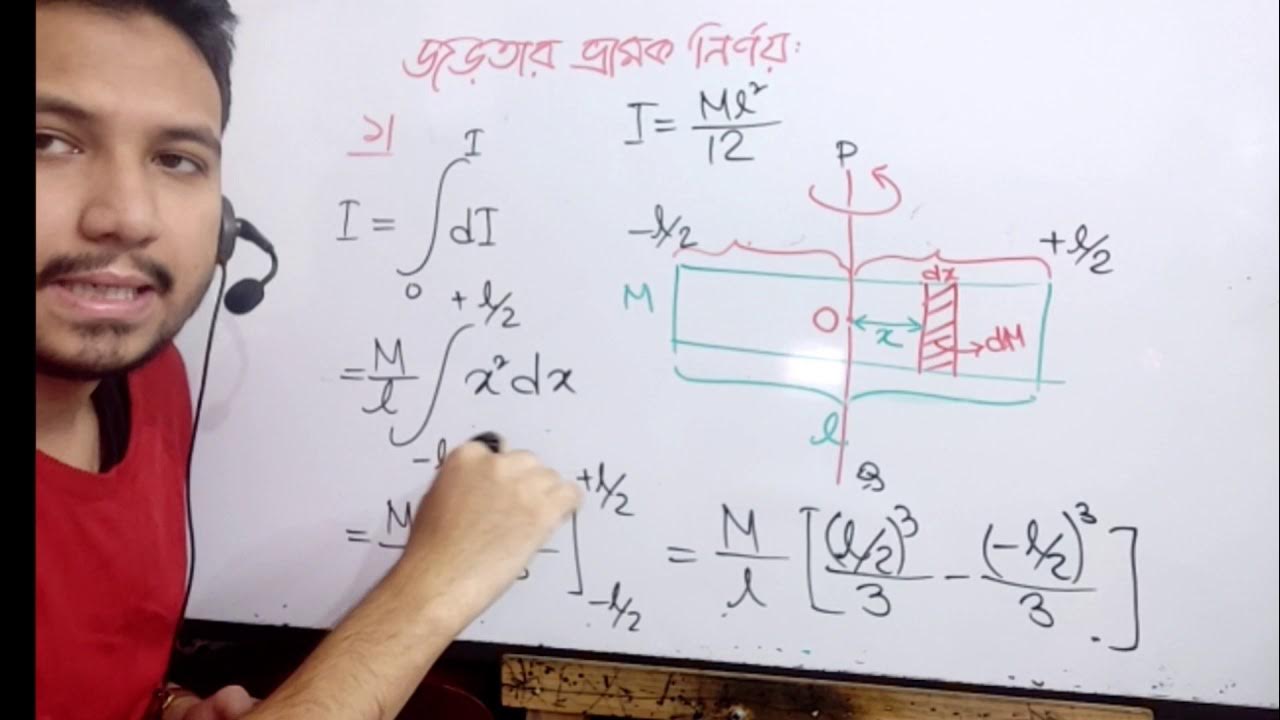 জড়তার ভ্রামক নির্ণয়:
১।
I = Ml²/12
I = ∫₀ᴵ dI
= M/l ∫ x² dx
+l/2
-l
= M
]
+l/2
-l/2
= M/l [(l/2)³/3 - (-l/2)³/3]
P
-l/2
+l/2
dx
M
O
x
dM
l
Q